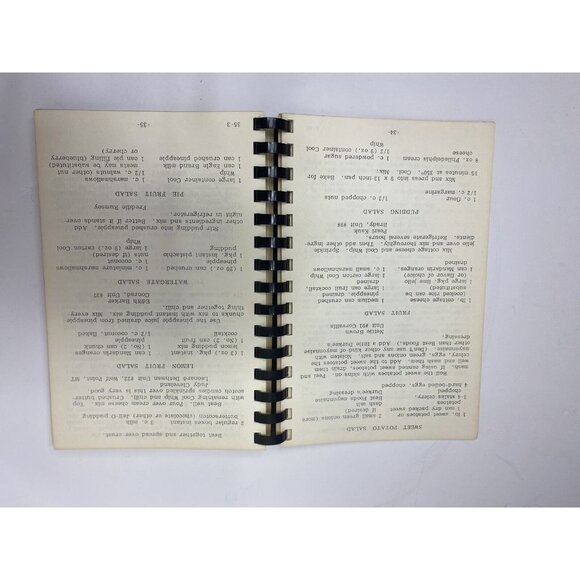 SWEET POTATO SALAD
1 lb. sweet potatoes or
1 can dry packed sweet
potatoes
3-4 stalks celery,
chopped
4 hard-boiled eggs, chopped
2 small green onions (more
if desired)
dash salt
Best Foods mayonnaise
Durkee's dressing
Boil the sweet potatoes with skins on. Peel and
mash. If using canned sweet potatoes, drain then
mash them. Add to the sweet potatoes the
celery, eggs, green onions and salt. Moisten with
mayonnaise. (Don't use any other kind of mayonnaise
other than Best Foods). Add a little Durkee's
dressing.
Nettie Brown
Unit #91 Corvallis
FRUIT SALAD
1 lb. cottage cheese
(cooked rice can be
substituted)
1 large pkg. lime jello
(or flavor of choice)
1 can Mandarin oranges,
drained
1 medium can crushed
pineapple, drained
1 large can fruit cocktail,
drained
1 large carton Cool Whip
1 c. small marshmallows
Mix cottage cheese and Cool Whip. Sprinkle
jello over and mix thoroughly. Then add other ingre-
dients. Refrigerate several hours.
Pearl Kauk
Brady, Unit #98
PUDDING SALAD
1 c. flour
1/2 c. margarine
1 c. chopped nuts
Mix and press into 9 x 13-inch pan. Bake for
15 minutes at 350°. Cool.
Mix:
8 oz. Philadelphia cream
cheese
1 c. powdered sugar
1/2 (9 oz.) container Cool
Whip
-34-
Beat together and spread over crust.
2 regular boxes instant
butterscotch (chocolate or other) Jell-O pudding
3 c. milk
Beat well. Pour over cream cheese mix. Top
with remaining Cool Whip and chill. Crushed butter-
scotch candies sprinkled over this is very good.
Judy Cleland
Leonard Hufford Unit #22, West Point,
LEMON FRUIT SALAD
1 (3 oz.) pkg. instant
lemon pudding mix
1 (No. 2) can chunk
pineapple
1 (No. 3) can fruit
cocktail
1 can mandarin oranges
1/2 c. coconut, flaked
Use the pineapple juice drained from pineapple
chunks to mix with instant pudding mix. Mix every
thing together and chill.
Edith Barker
Conrad, Unit #37
WATERGATE SALAD
1 (20 oz.) can crushed
pineapple
1 pkg. instant pistachio
pudding
1 c. miniature marshmallows
1/2 c. nuts (if desired)
1 carton (9 oz.) Cool
Whip
Stir pudding into crushed pineapple. Add
other ingredients and mix. Better if it stands over
night in refrigerator.
Freddie Rumney
PIE FRUIT SALAD
1 large container Cool
Whip
1 can Eagle Brand milk
1 can crushed pineapple
1 c. coconut
1 c. marshmallows
1/2 c. walnuts (other nut
meats may be substituted)
1 can pie filling (blueberry
or cherry)
35-3
-35-